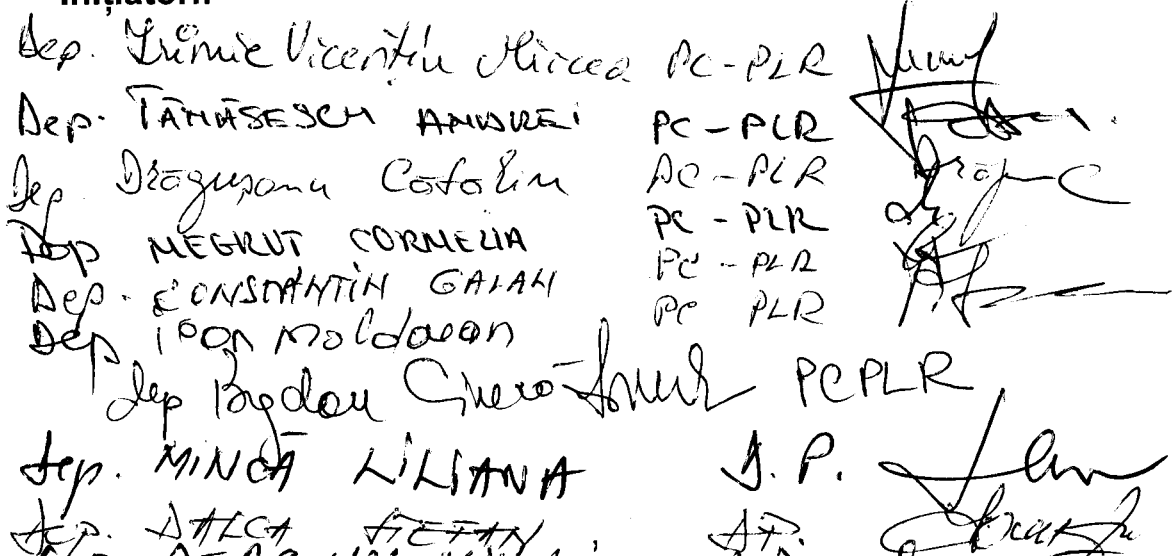 Inițiatorii
Dep. Irimie Vicențiu Mircea PC-PLR
Dep. TĂMĂSESCU ANDREI PC-PLR
Dep. Drăgușanu Cătălin PC-PLR
Dep MEGRUT CORNELIA PC-PLR
Dep. CONSTANTIN GALAN PC-PLR
Dep. Ioan Moldovan PC PLR
Dep Bogdan PCPLR
Dep. MINCĂ LILIANA D.P.
Dep. DALCA ȘTEFAN D.P.